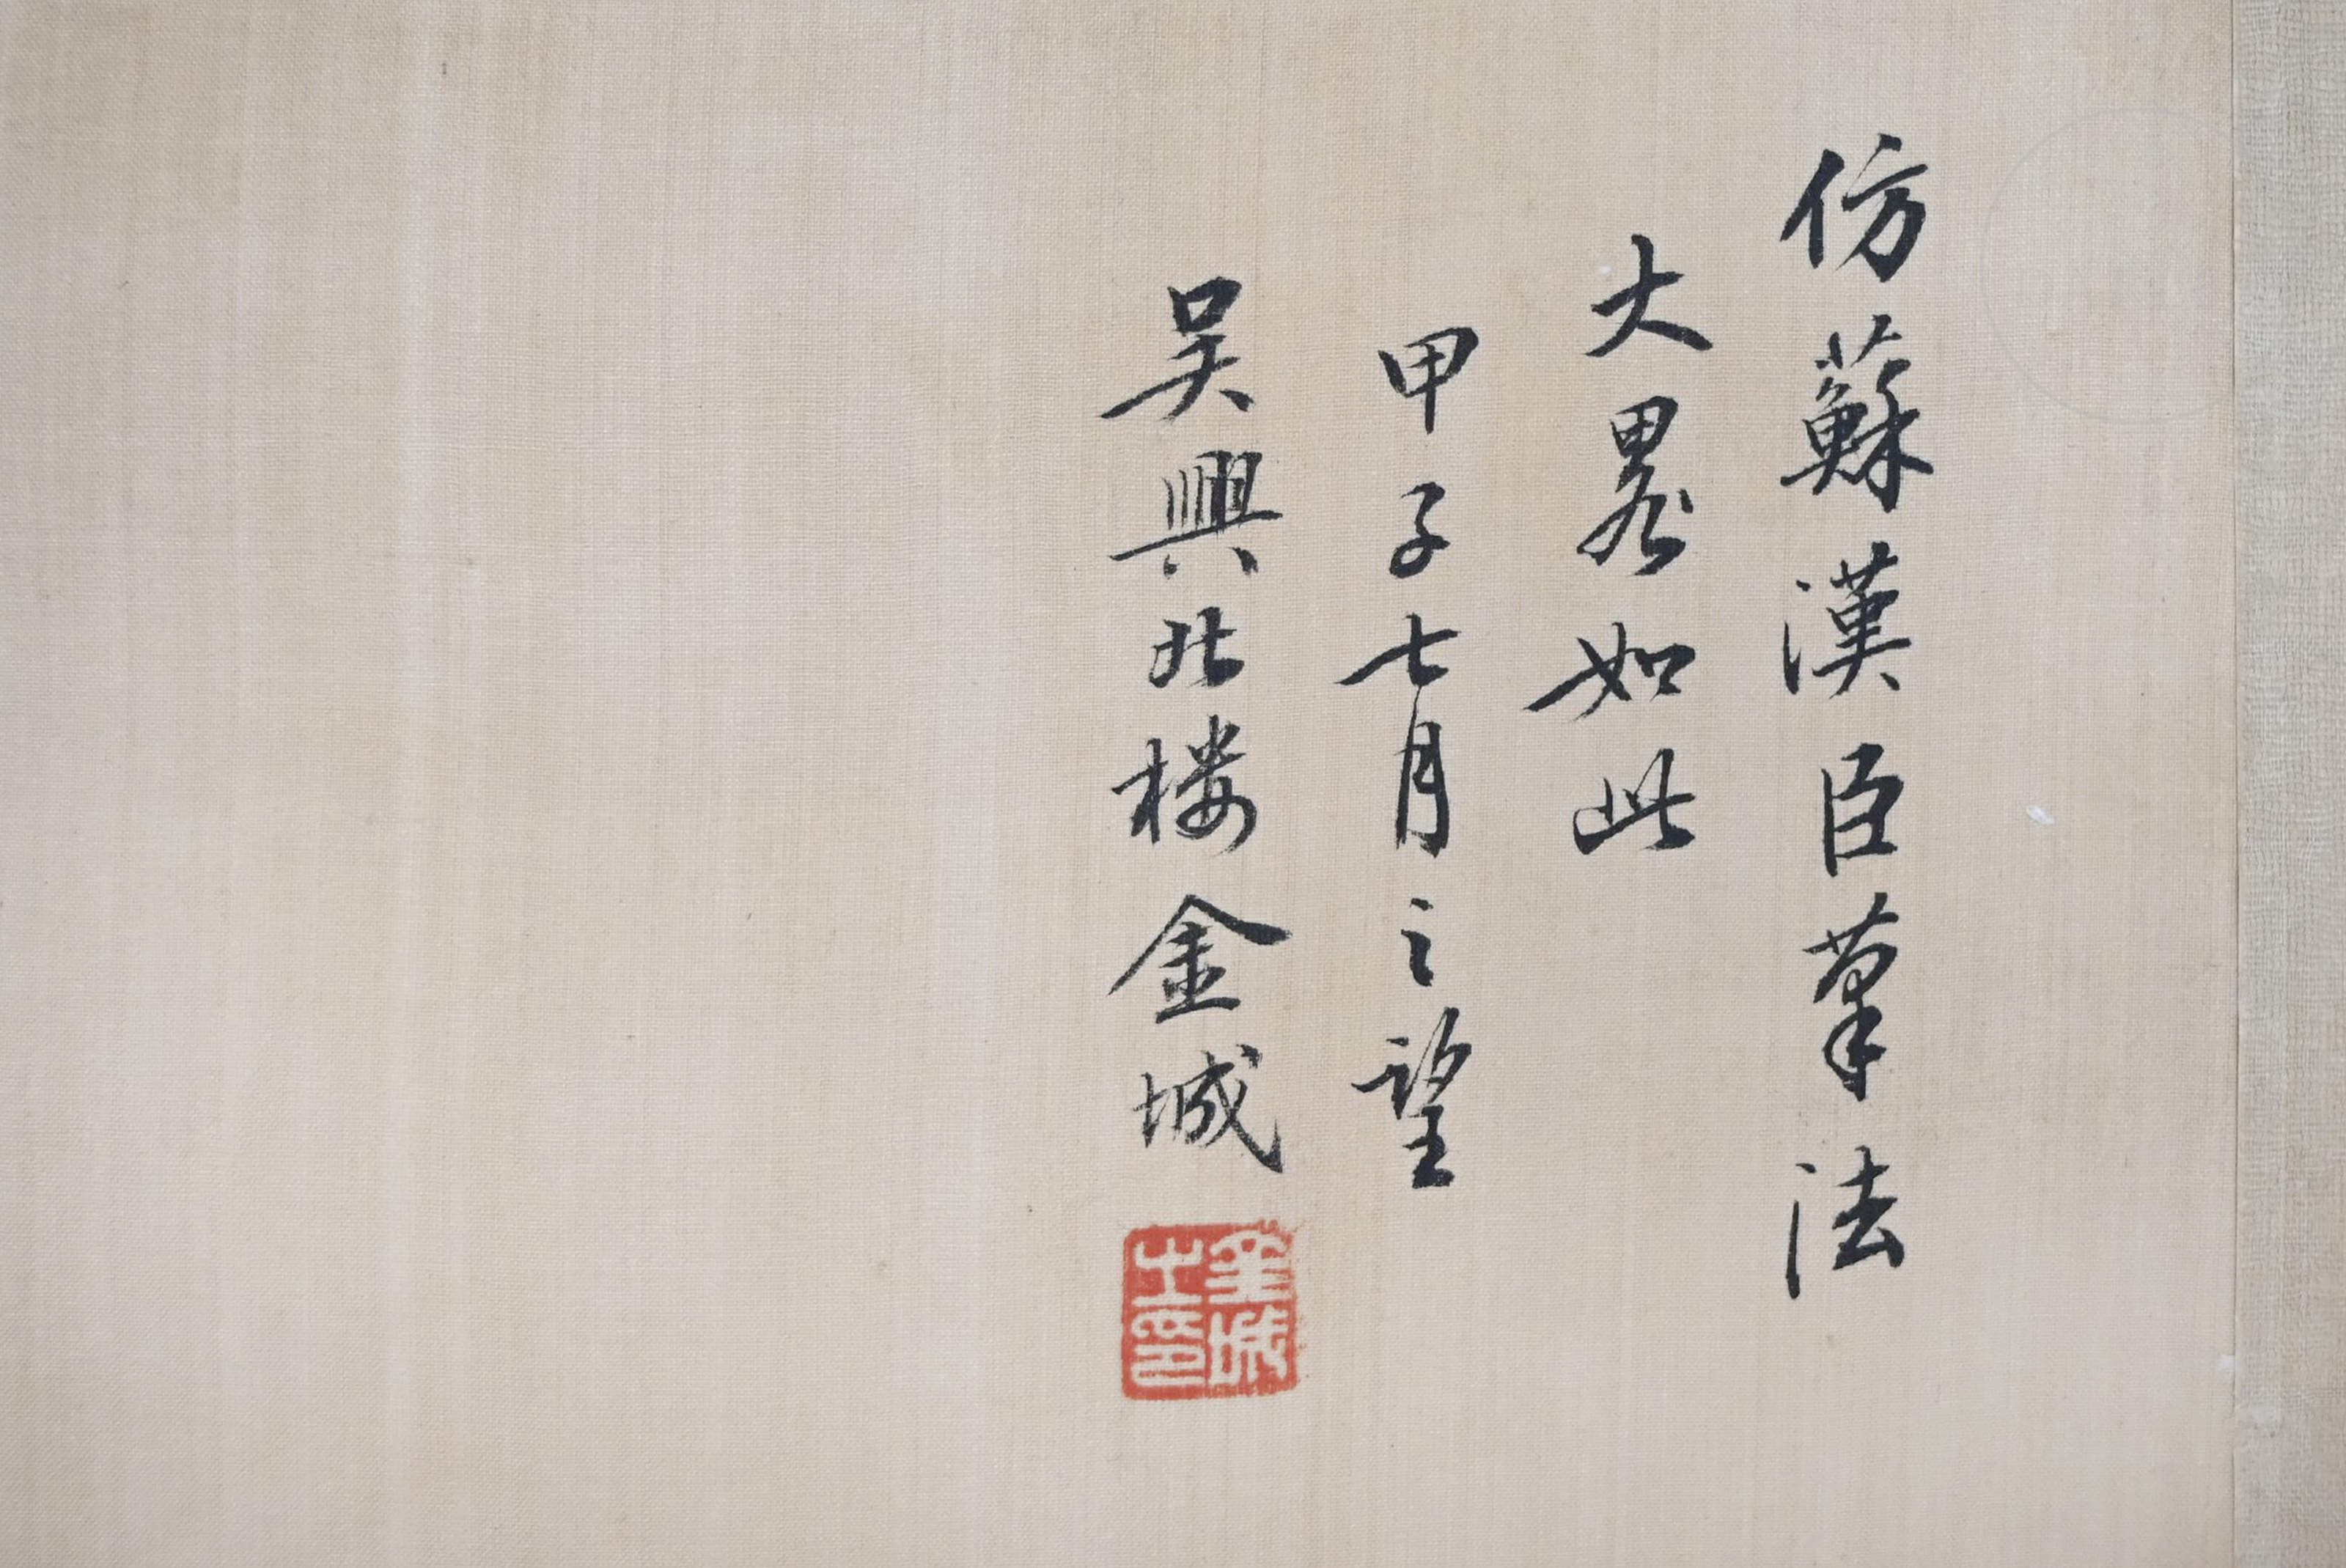 仿蘇漢臣筆法
大畧如此
甲子七月之望
吳興北楼金城
金城之印